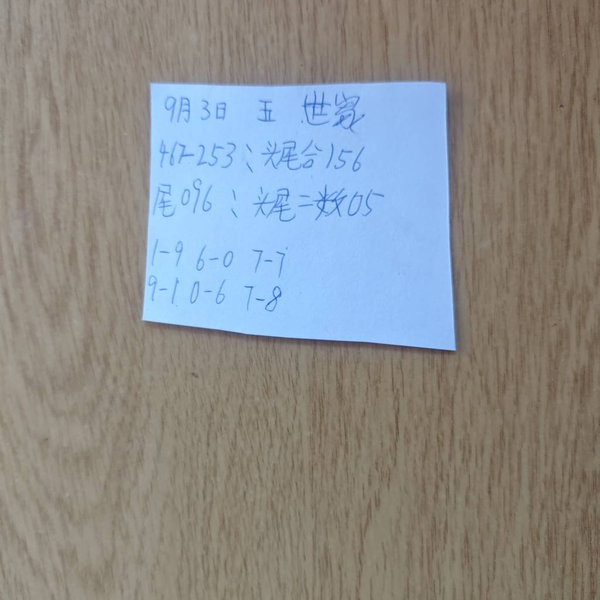 9月3日 五 世家
467-253;头尾合156
尾096;头尾二数05
1-9 6-0 7-7
9-1 0-6 7-8